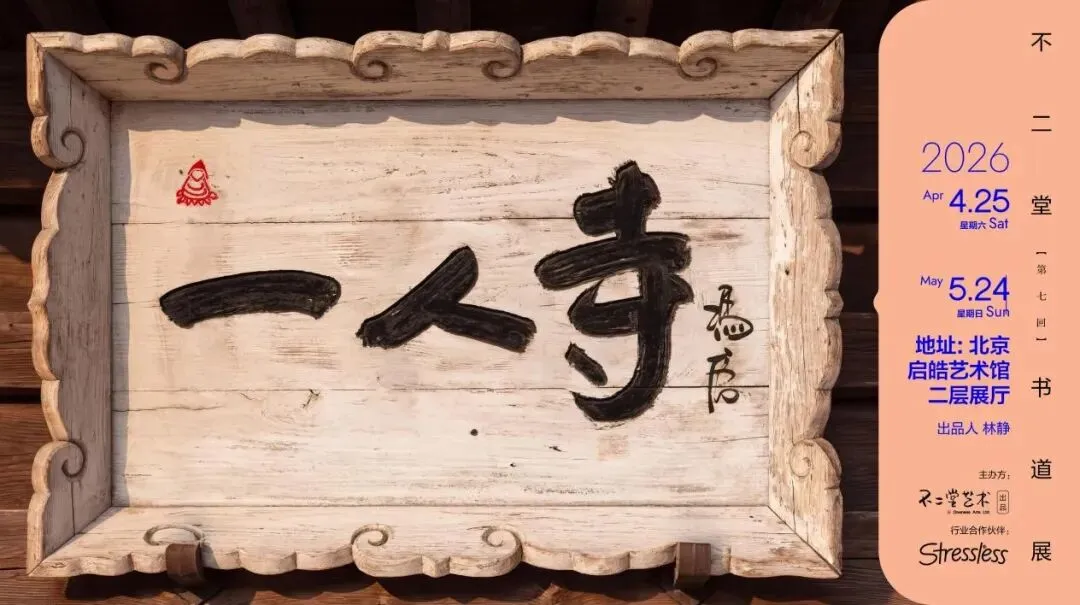 一人寺
馮唐
不二堂【第七回】书道展
2026
Apr 4.25
星期六 Sat
May 5.24
星期日 Sun
地址: 北京
启皓艺术馆
二层展厅
出品人 林静
主办方:
不二堂艺术 出品
行业合作伙伴:
Stressless